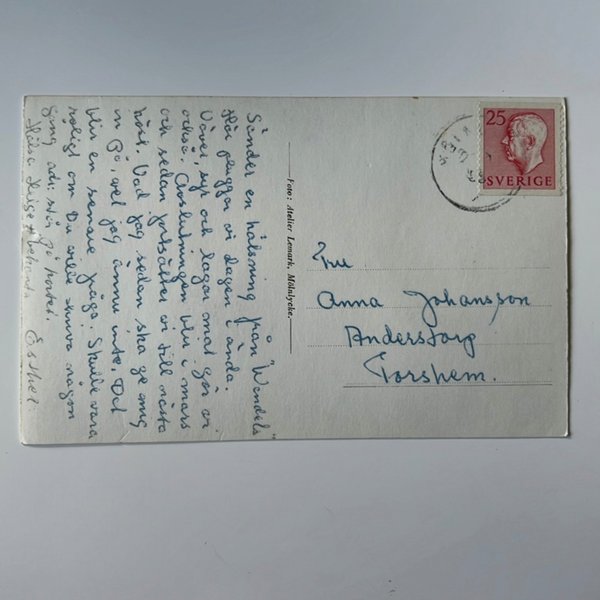 Sänder en hälsning från "Wendels"
Här plugga vi dagen i ända.
Väver, syr och lagar mat gör vi
också. Avslutningen blir i mars
och sedan fortsätter vi till nästa
höst. Vad jag sedan ska ge mig
in på, vet jag ännu inte. Det
blir en senare fråga. Skulle vara
roligt om Du ville skriva någon
gång adr. står på kortet.
Hälsa
Esther.
Foto: Atelier Lemark, Mölnlycke.
25
SVERIGE
Fru
Anna Johansson
Anderstorp
Torshem.